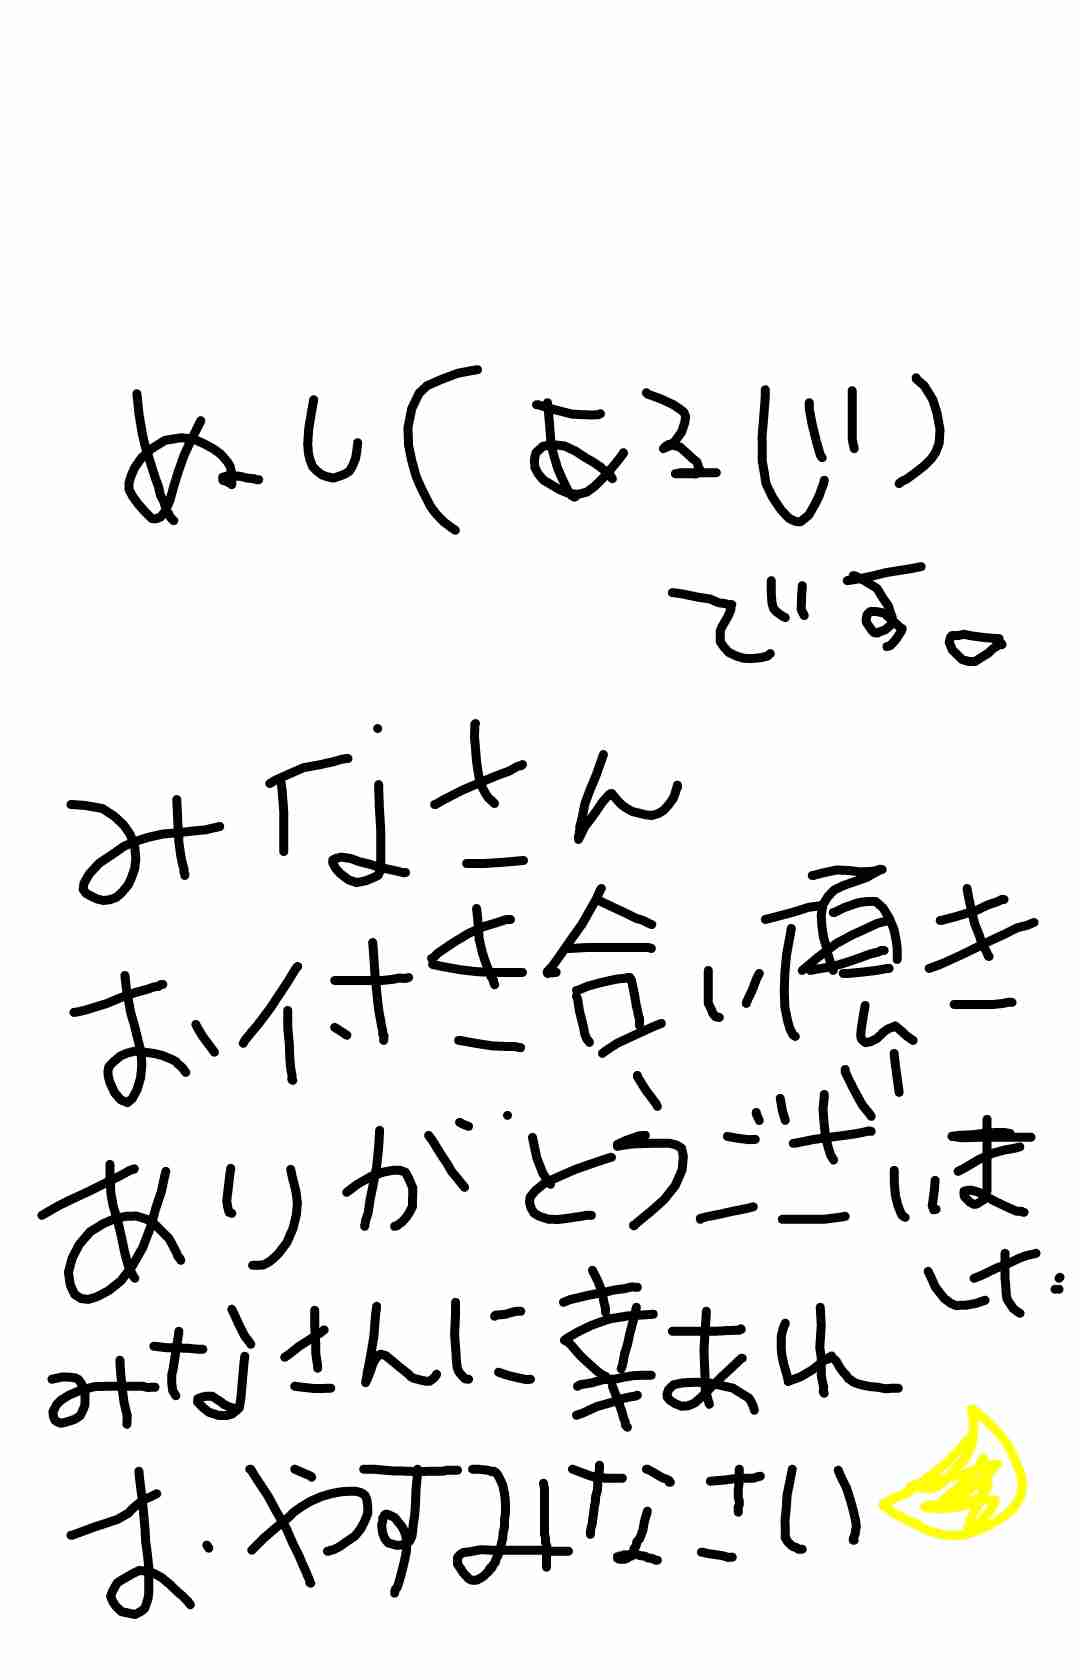 ぬし(あるじ)
です。
みなさん
お付き合い頂き
ありがとうございま
した
みなさんに幸あれ
おやすみなさい